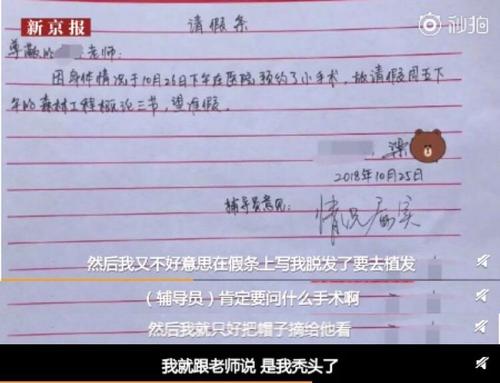 新京报
秒拍
请假条
尊敬的 老师:
因身体情况于10月26日下午在医院预约了小手术,故请假周五下
午的森林工程概论三节,望准假。
梁
2018年10月25日
辅导员意见:
情况属实
然后我又不好意思在假条上写我脱发了要去植发
(辅导员)肯定要问什么手术啊
然后我就只好把帽子摘给他看
我就跟老师说 是我秃头了